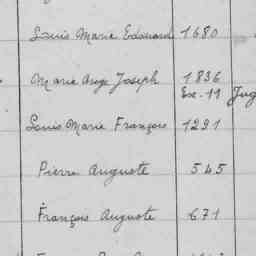 Louis Marie Edouard 1680
Marie Ange Joseph 1836
Ex. 11 Jug
Louis Marie François 1291
Pierre Auguste 545
François Auguste 671